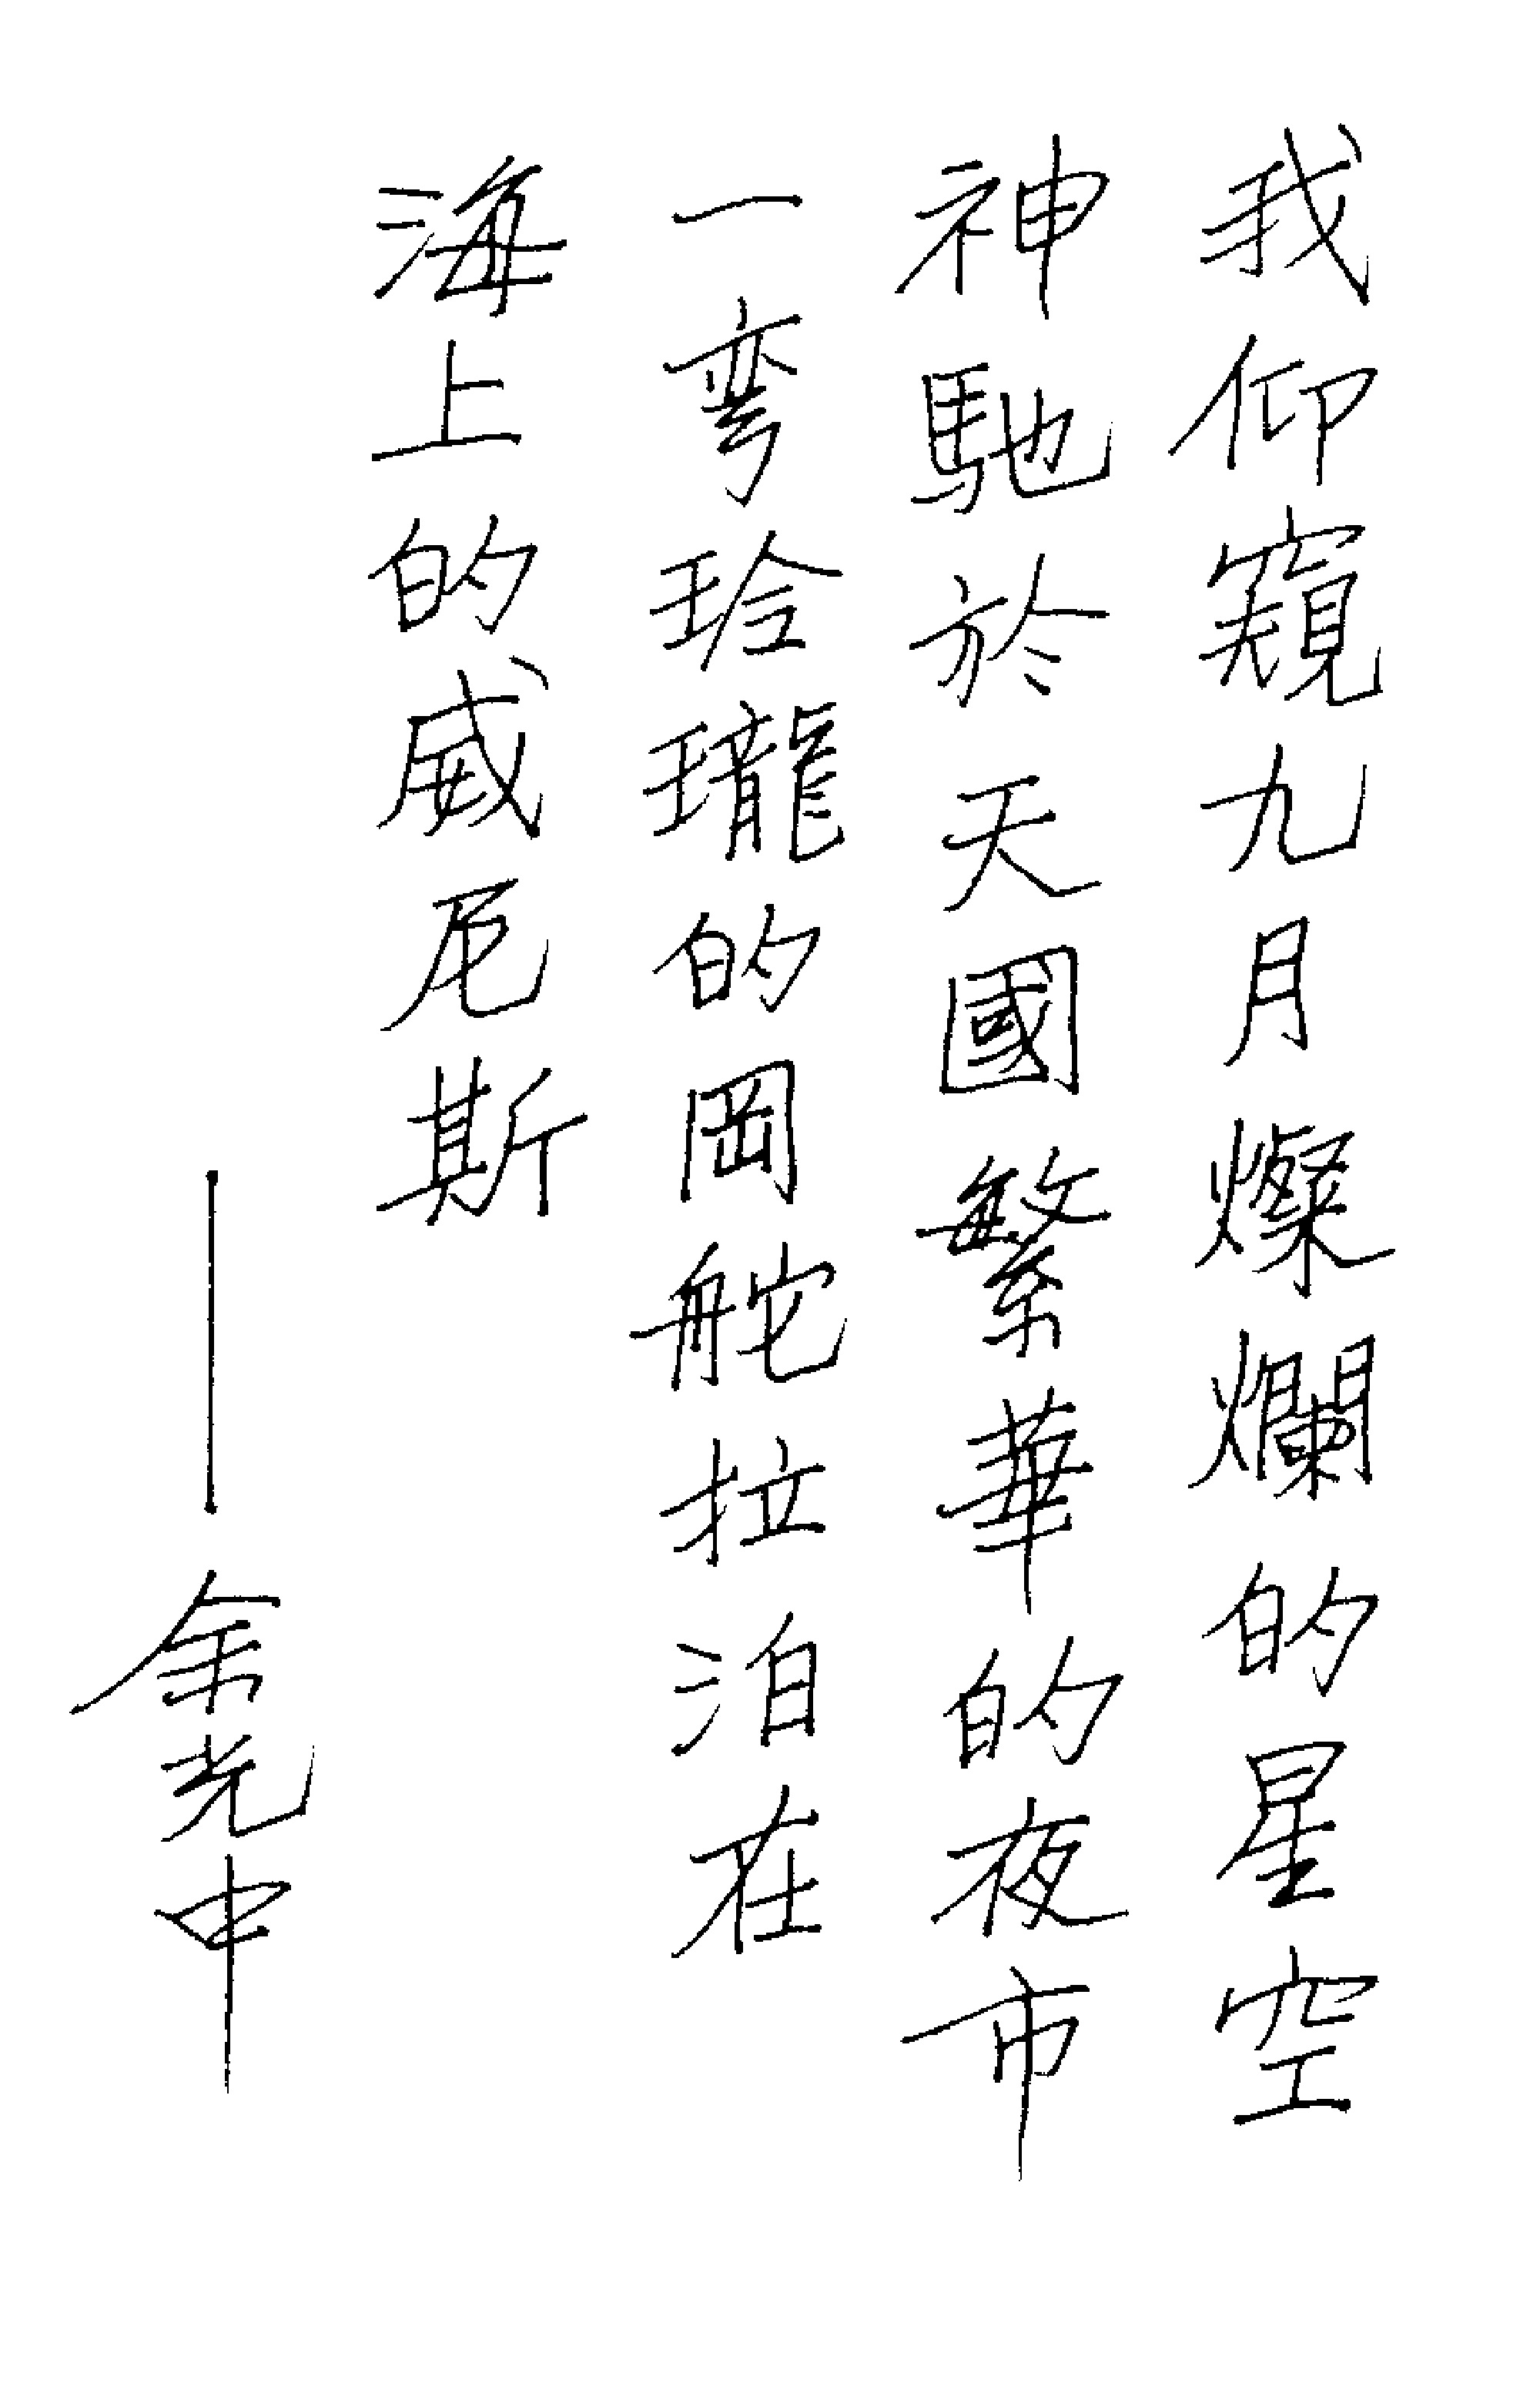 我仰窺九月燦爛的星空
神馳於天國繁華的夜市
一弯玲瓏的岡舵拉泊在
海上的威尼斯
——余光中